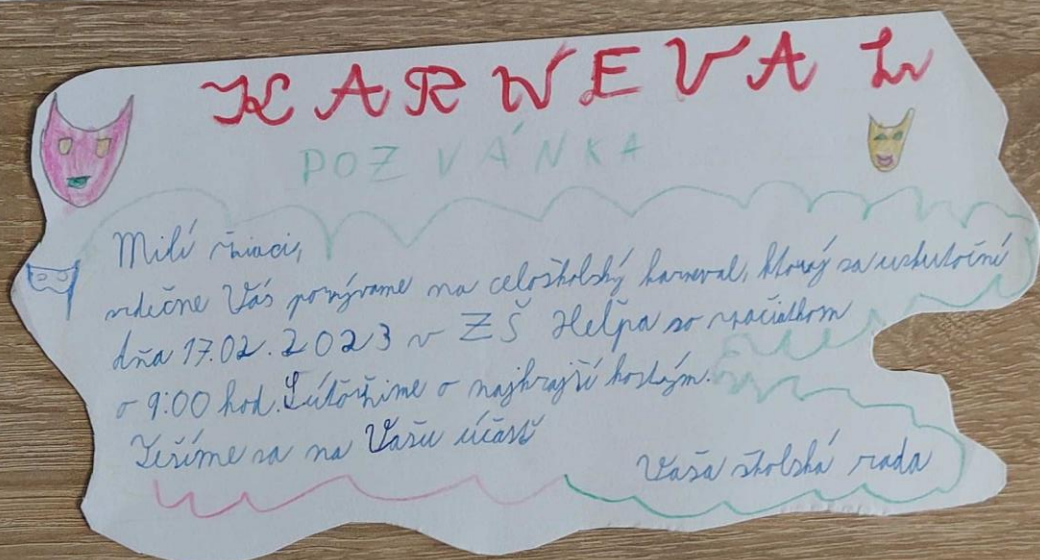 KARNEVAL
POZVÁNKA
Milí žiaci,
srdečne Vás pozývame na celoškolský karneval, ktorý sa uskutoční
dňa 17.02.2023 v ZŠ Heľpa so začiatkom
o 9:00 hod. Súťažíme o najkrajší kostým.
Tešíme sa na Vašu účasť
Vaša školská rada